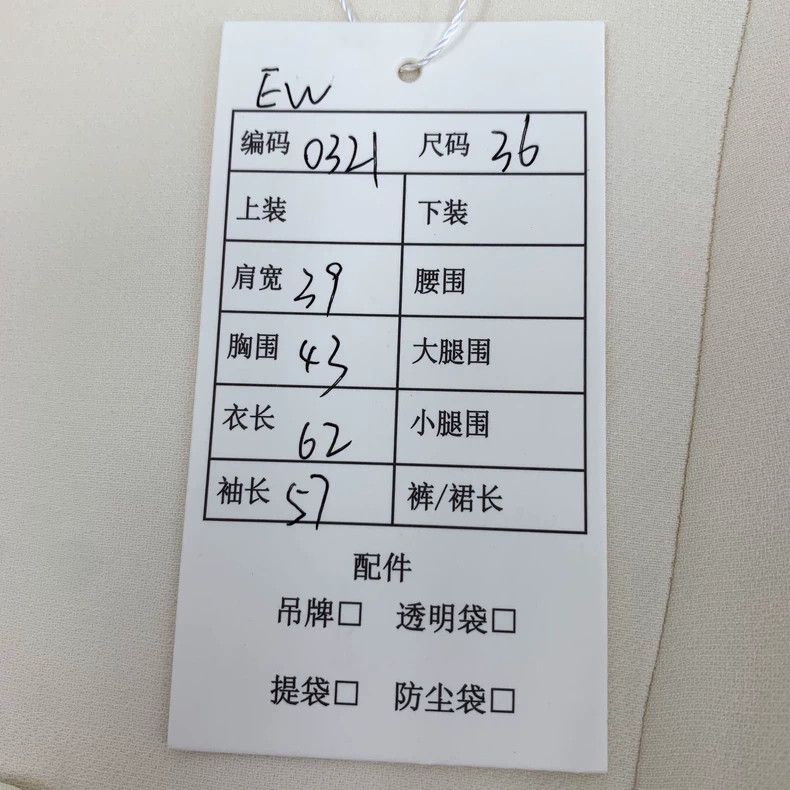 EW
编码 0321 尺码 36
上装 下装
肩宽 39 腰围
胸围 43 大腿围
衣长 62 小腿围
袖长 57 裤/裙长
配件
吊牌□ 透明袋□
提袋□ 防尘袋□